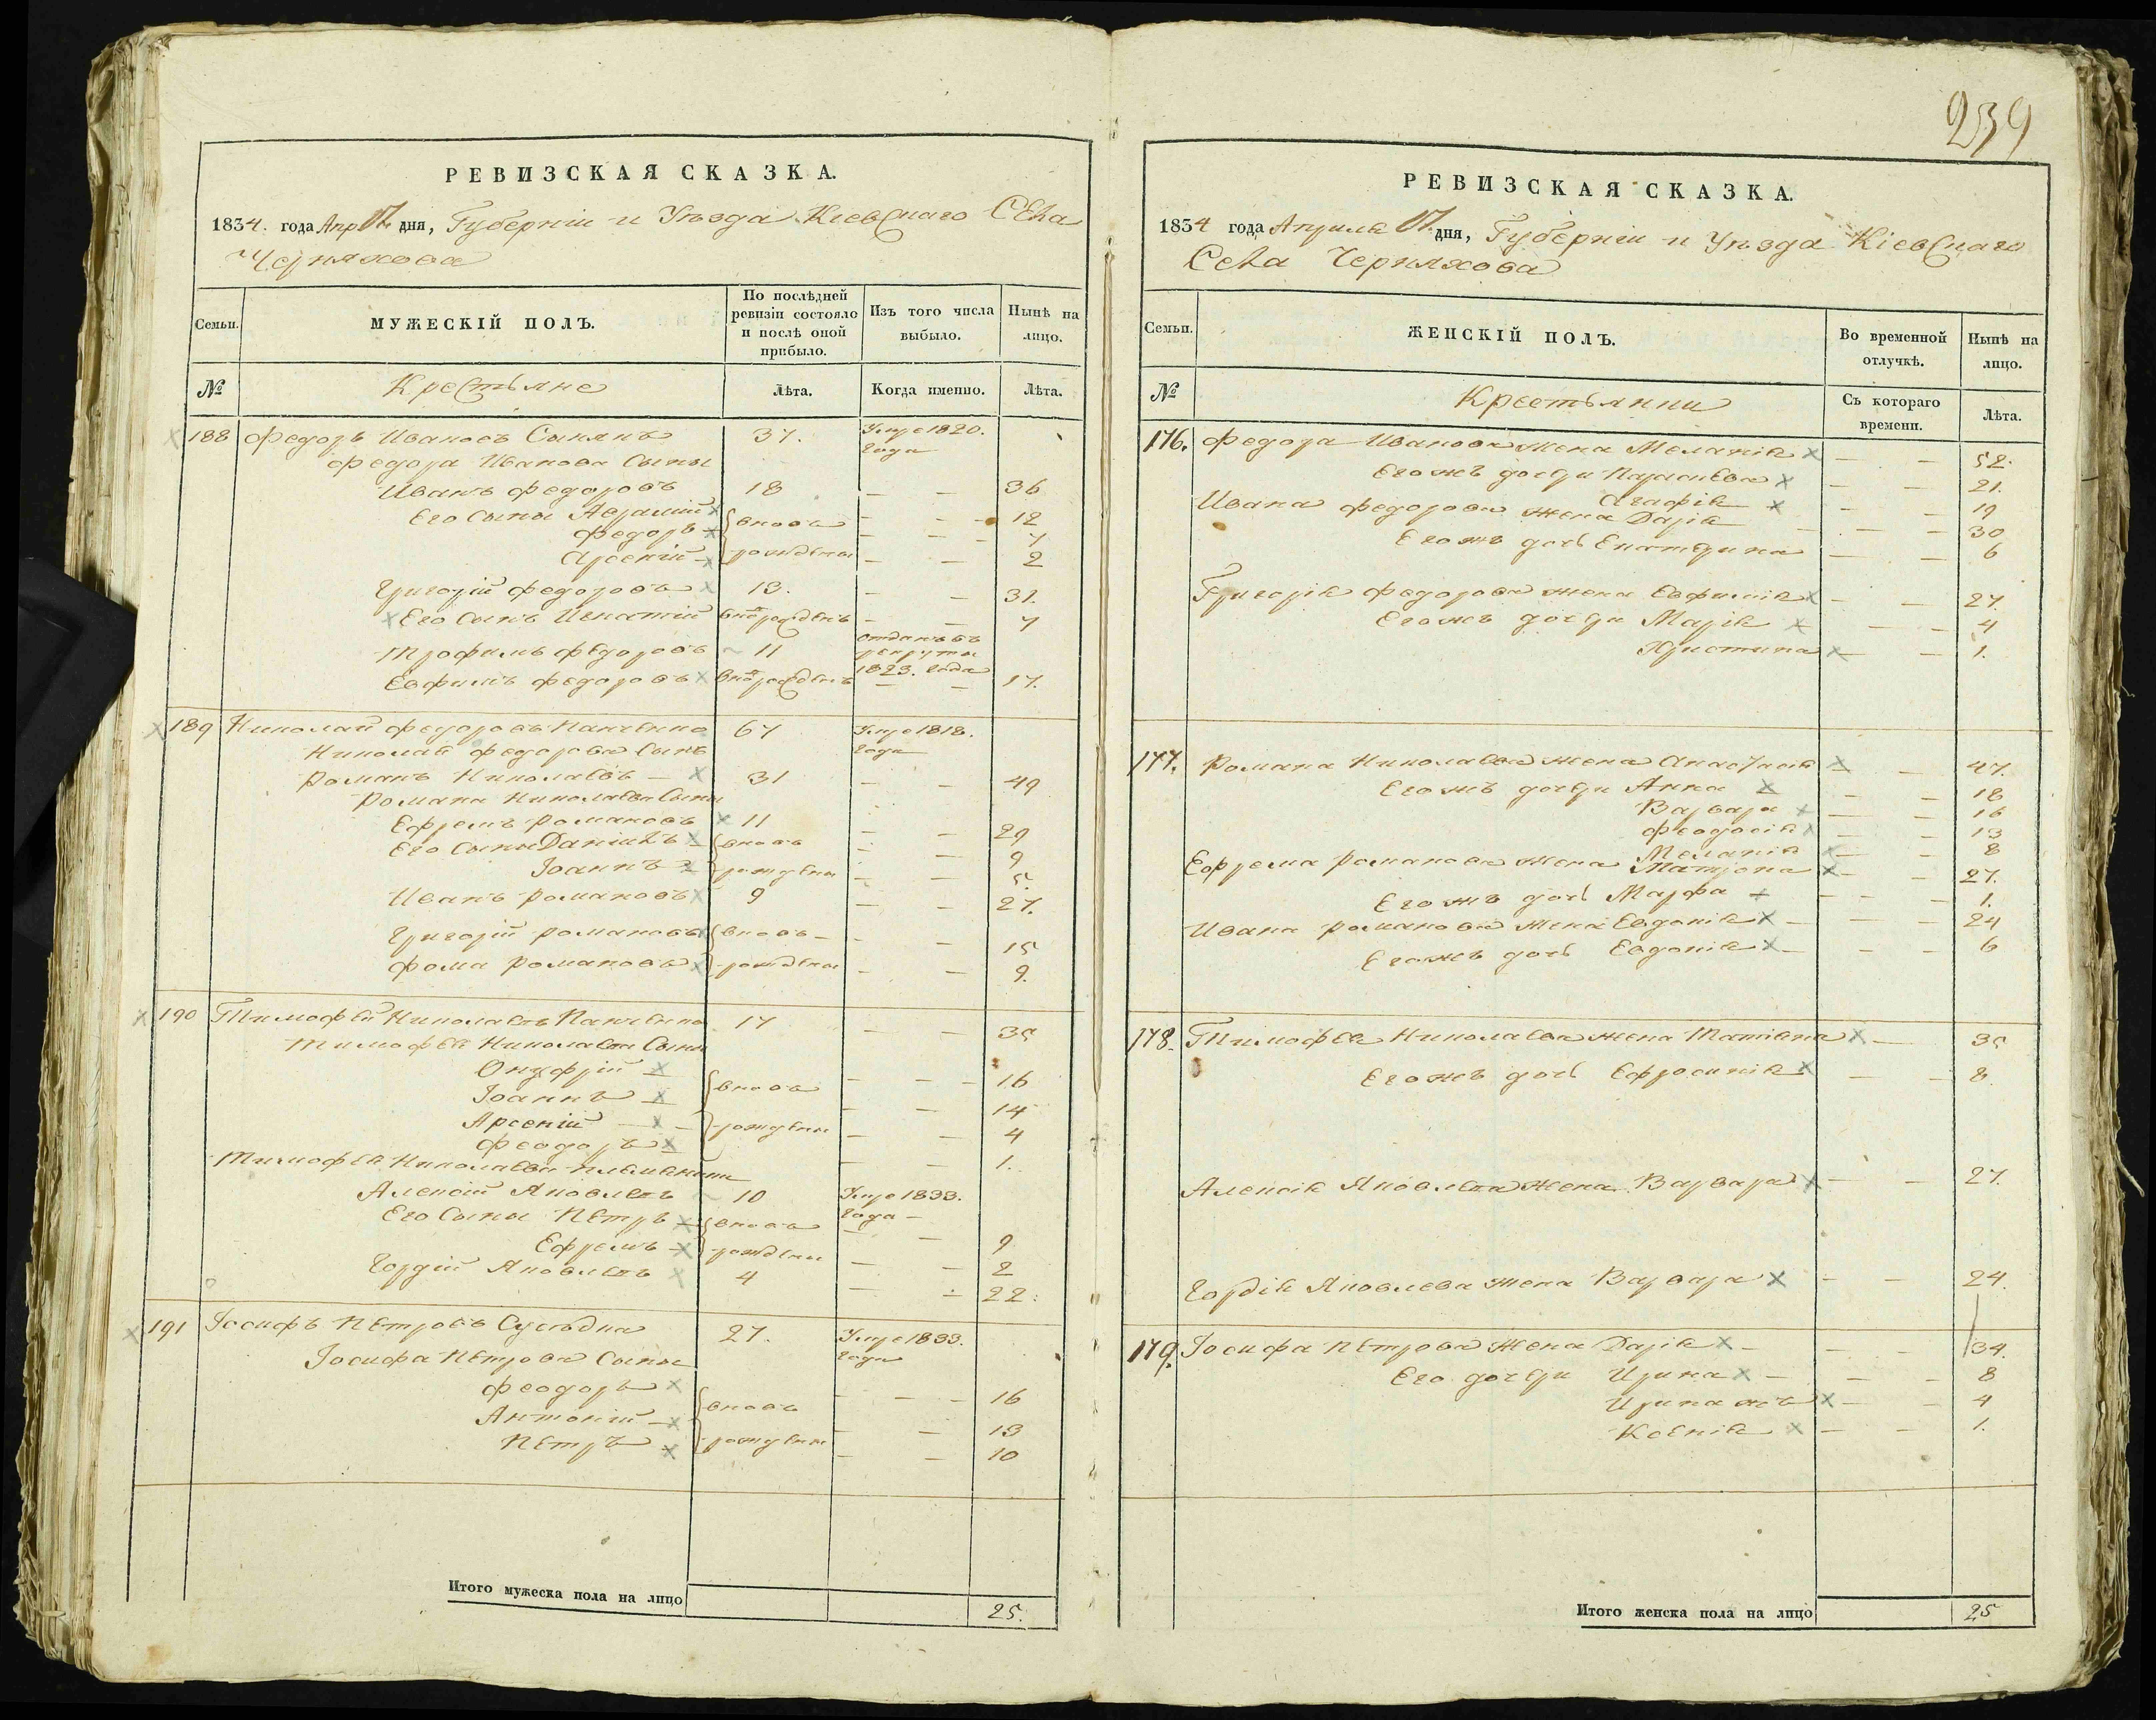 239
РЕВИЗСКАЯ СКАЗКА.
1834. года Апр 17. дня, Губерніи и Уѣзда Кіевскаго Села
Черняхова
Семьи.
МУЖЕСКІЙ ПОЛЪ.
По послѣдней ревизіи состояло и послѣ оной прибыло.
Изъ того числа выбыло.
Нынѣ на лицо.
№
Крестьяне
Лѣта.
Когда именно.
Лѣта.
188 Федоръ Ивановъ 37. Умре 1820. года
Федора Иванова Сыны
Иванъ Федоровъ 18 — — 36
Его Сыны Аврамій { вновь — — 12
Федоръ — — 7
Арсеній } рождены — — 2
Григорій Федоровъ 13. — — 31.
Его Сынъ Игнатій — — 7
Трофимъ Федоровъ 11 отданъ въ рекруты 1823. года
Евфимъ Федоровъ — — 17.
189 Николай Федоровъ Панченко 67 Умре 1818. года
Николая Федорова Сынъ
Романъ Николаевъ — 31 — — 49
Романа Николаева Сыны
Ефремъ Романовъ 11 — — 29
Его Сыны Даніилъ { вновь — — 9
Іоаннъ } рождены — — 5.
Иванъ Романовъ 9 — — 27.
Григорій Романовъ { вновь — — — 15
Фома Романовъ } рождены — — 9.
190 Тимофей Николаевъ Панченко 17 — — 35
Тимофея Николаева Сыны
Онуфрій { вновь — — 16
Іоаннъ — — 14
Арсеній — } рождены — — 4
Феодоръ — — 1.
Тимофея Николаева племянники
Алексій Яковлевъ 10 Умре 1833. года —
Его Сыны Петръ { вновь — — 9
Ефремъ } рождены — — 2
Гордій Яковлевъ 4 — — 22.
191 Іосифъ Петровъ 27. Умре 1833. года
Іосифа Петрова Сыны
Феодоръ { вновь — — 16
Антоній — — 13
Петръ } рождены — — 10
Итого мужеска пола на лицо 25.
РЕВИЗСКАЯ СКАЗКА.
1834 года Апреля 17. дня, Губерніи и Уѣзда Кіевскаго
Села Черняхова
Семьи.
ЖЕНСКІЙ ПОЛЪ.
Во временной отлучкѣ.
Нынѣ на лицо.
№
Крестьянки
Съ котораго времени.
Лѣта.
176. Федора Иванова жена Меланія — — 52.
Его жъ дочери Параскева — — 21.
Агафія — — 19
Ивана Федорова жена Дарія — — 30
Его жъ дочь Екатерина — — 6
Григорія Федорова жена Евфимія — — 27.
Его жъ дочери Марія — — 4
Христина — — 1.
177. Романа Николаева жена Анастасія — — 47.
Его жъ дочери Анна — — 18
Варвара — — 16
Феодосія — — 13
Меланія — — 8
Ефрема Романова жена Матрона — — 27.
Его жъ дочь Марфа — — 1.
Ивана Романова жена Евдокія — — 24
Его жъ дочь Евдокія — — 6
178. Тимофея Николаева жена Татіана — 35
Его жъ дочь Ефросинія — — 8
Алексія Яковлева жена Варвара — — 27.
Гордія Яковлева жена Варвара — — 24.
179. Іосифа Петрова жена Дарія — — 34.
Его дочери Ирина — — — 8
Ирина жъ — — 4
Ксенія — — 1.
Итого женска пола на лицо 25